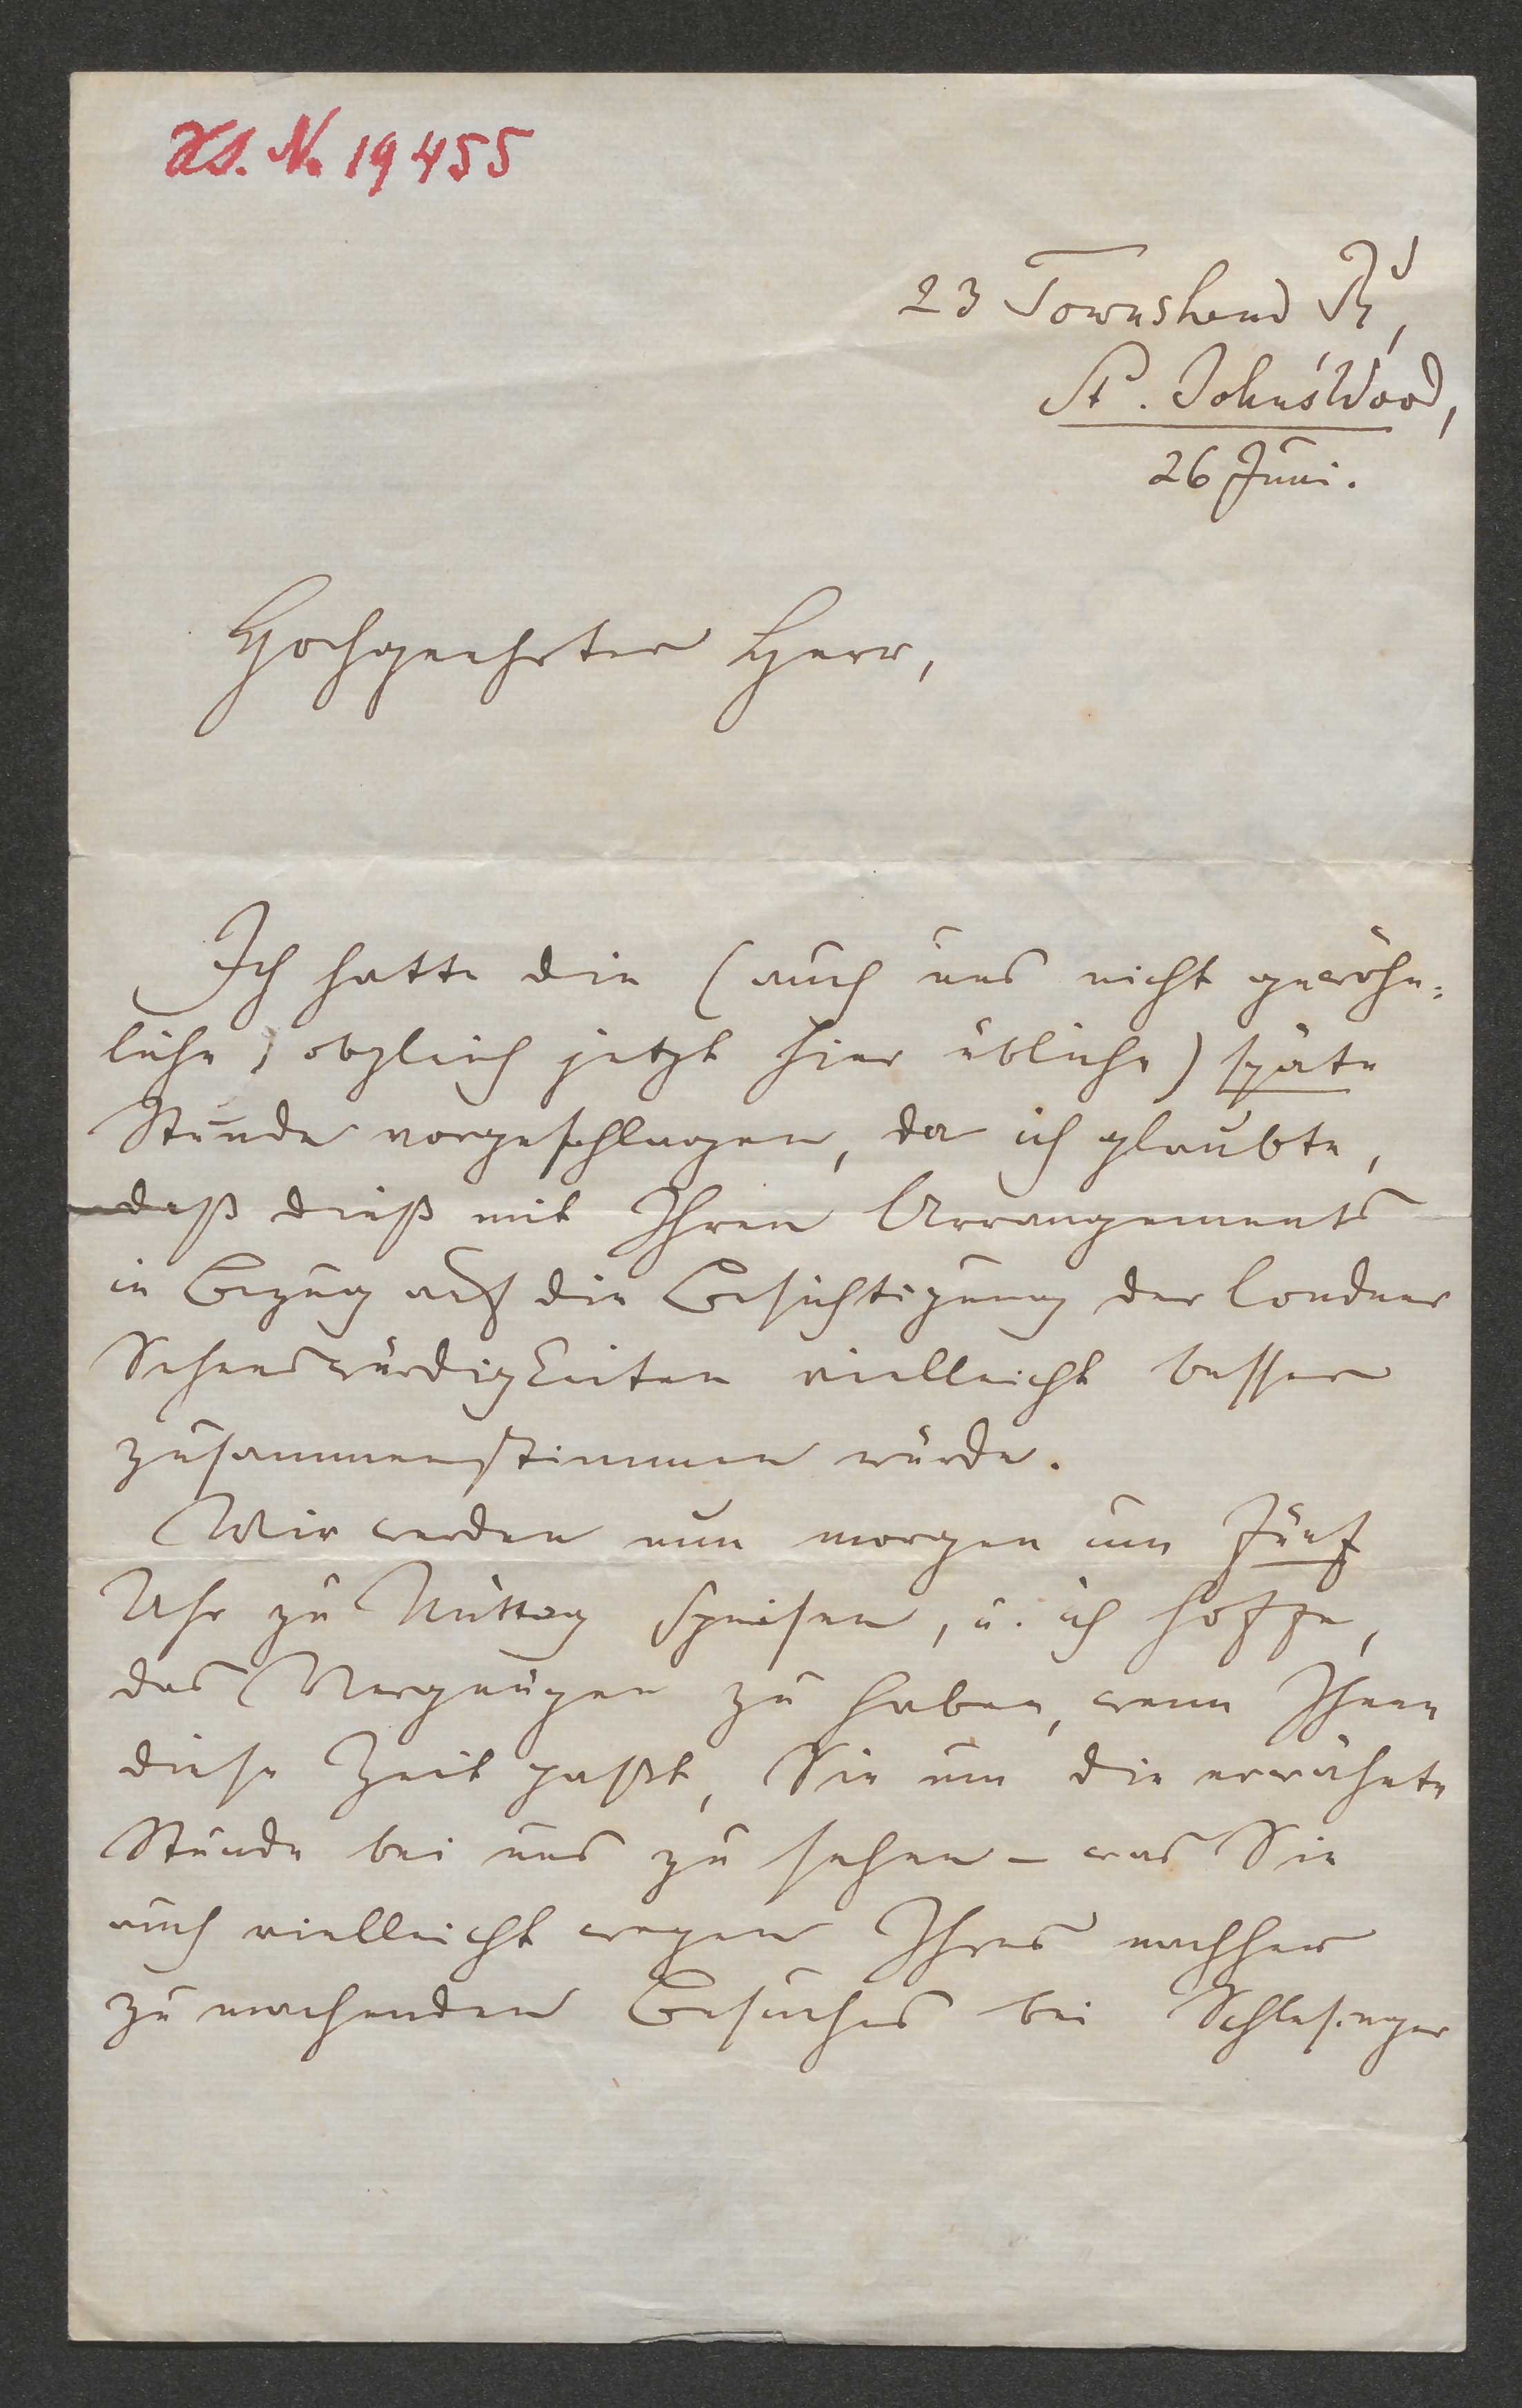 Hs. N. 19455
23 Townshend Rd,
St. John's Wood,
26 Juni.
Hochgeehrter Herr,
Ich hatte die (auch uns nicht gewöhn-
liche, obgleich jetzt hier übliche) späte
Stunde vorgeschlagen, da ich glaubte,
daß dieß mit Ihren Arrangements
in Bezug auf die Besichtigung der Londner
Sehenswürdigkeiten vielleicht besser
zusammenstimmen würde.
Wir werden nun morgen um fünf
Uhr zu Mittag speisen, u. ich hoffe,
das Vergnügen zu haben, wenn Ihnen
diese Zeit paßt, Sie um die erwähnte
Stunde bei uns zu sehen – was Sie
auch vielleicht wegen Ihres nachher
zu machenden Besuches bei Schlesinger